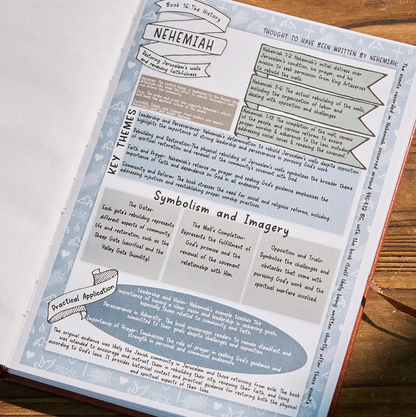 Book 16: The History
NEHEMIAH
Restoring Jerusalem's walls
and renewing faithfulness
THOUGHT TO HAVE BEEN WRITTEN BY NEHEMIAH
Nehemiah 1-2: Nehemiah's initial distress over
Jerusalem's condition, his prayer, and his
decision to seek permission from King Artaxerxes
to rebuild the walls
Nehemiah 7-6: The actual rebuilding of the walls,
including the organization of labor and
dealing with opposition and challenges
Nehemiah 7-13: The completion of the wall, census
of the people, and various reforms to ensure
proper worship & adherence to the law, including
KEY THEMES
Leadership and Perseverance: Nehemiah's
highlights the importance of strong leadership and perseverance in pursuing God's work
Rebuilding and Restoration: The physical rebuilding of Jerusalem's walls symbolizes the broader theme
of spiritual restoration and renewal of the community's covenant with God
Faith and Prayer: Nehemiah's reliance on prayer and seeking God's guidance emphasizes the
importance of faith and dependence on God in all endeavors
Community and Reform: The book stresses the need for social and religious reforms, including
addressing injustices and reestablishing proper worship practices
Symbolism and Imagery
The Gates:
Each gate's rebuilding represents
different aspects of community
life and restoration, such as the
Sheep Gate (sacrifice) and the
Valley Gate (humility)
The Wall's Completion:
Represents the fulfillment of
God's promise and the
renewal of the covenant
relationship with Him
Opposition and Trials:
Symbolizes the challenges and
obstacles that come with
pursuing God's work and the
spiritual warfare involved
Practical Application
Leadership and Vision: Nehemiah's example teaches the
importance of having a clear vision and leadership in achieving goals,
especially those related to community and faith
Perseverance in Adversity: The book encourages readers to remain steadfast and
committed to their goals despite challenges and opposition
Importance of Prayer: Emphasizes the role of prayer in seeking God's guidance and
strength in personal and communal endeavors
The original audience was likely the Jewish community in Jerusalem and those returning from exile. The book
was intended to encourage and instruct them in rebuilding their city, renewing their faith, and living
according to God's law. It provides historical context and practical guidance for restoring both the physical
and spiritual aspects of their lives